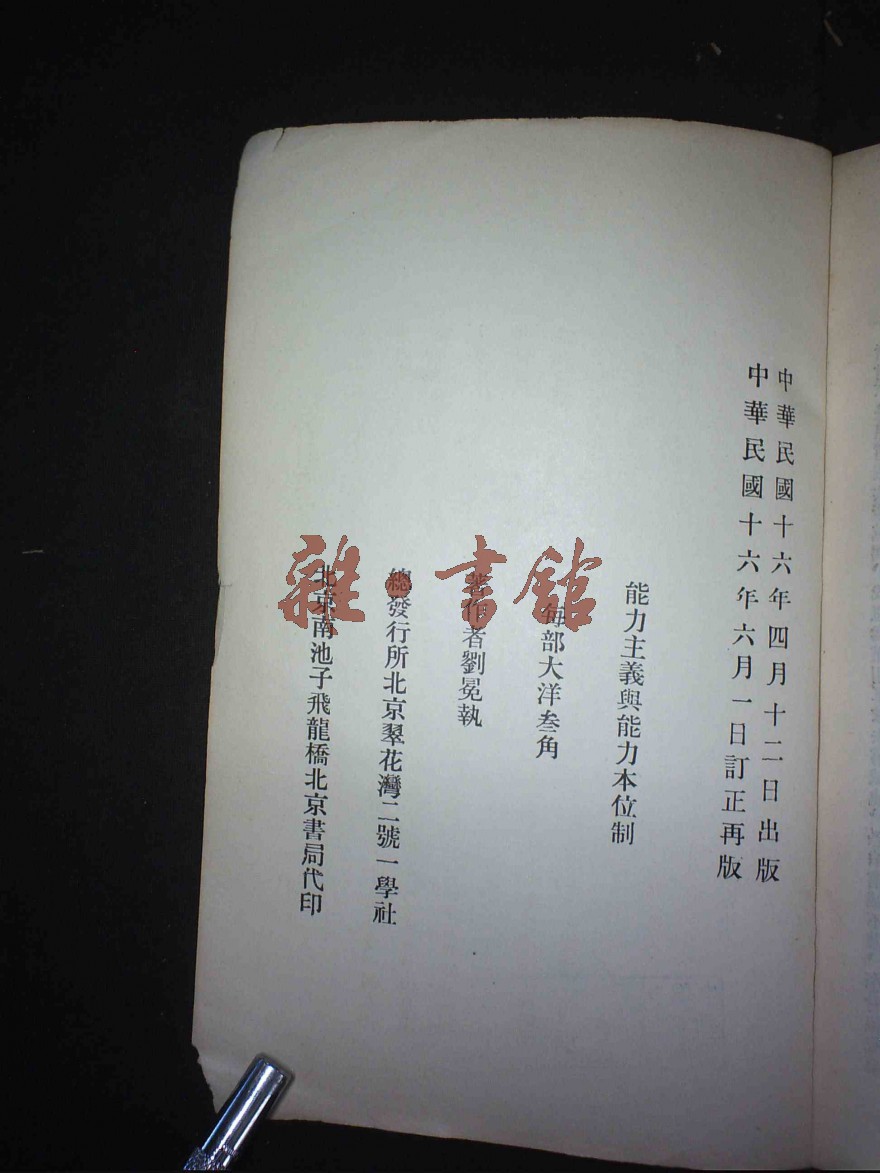 中華民國十六年四月十二日出版
中華民國十六年六月一日訂正再版
能力主義與能力本位制
每部大洋叁角
著作者劉冕執
總發行所北京翠花灣二號一學社
北京南池子飛龍橋北京書局代印
雜書館